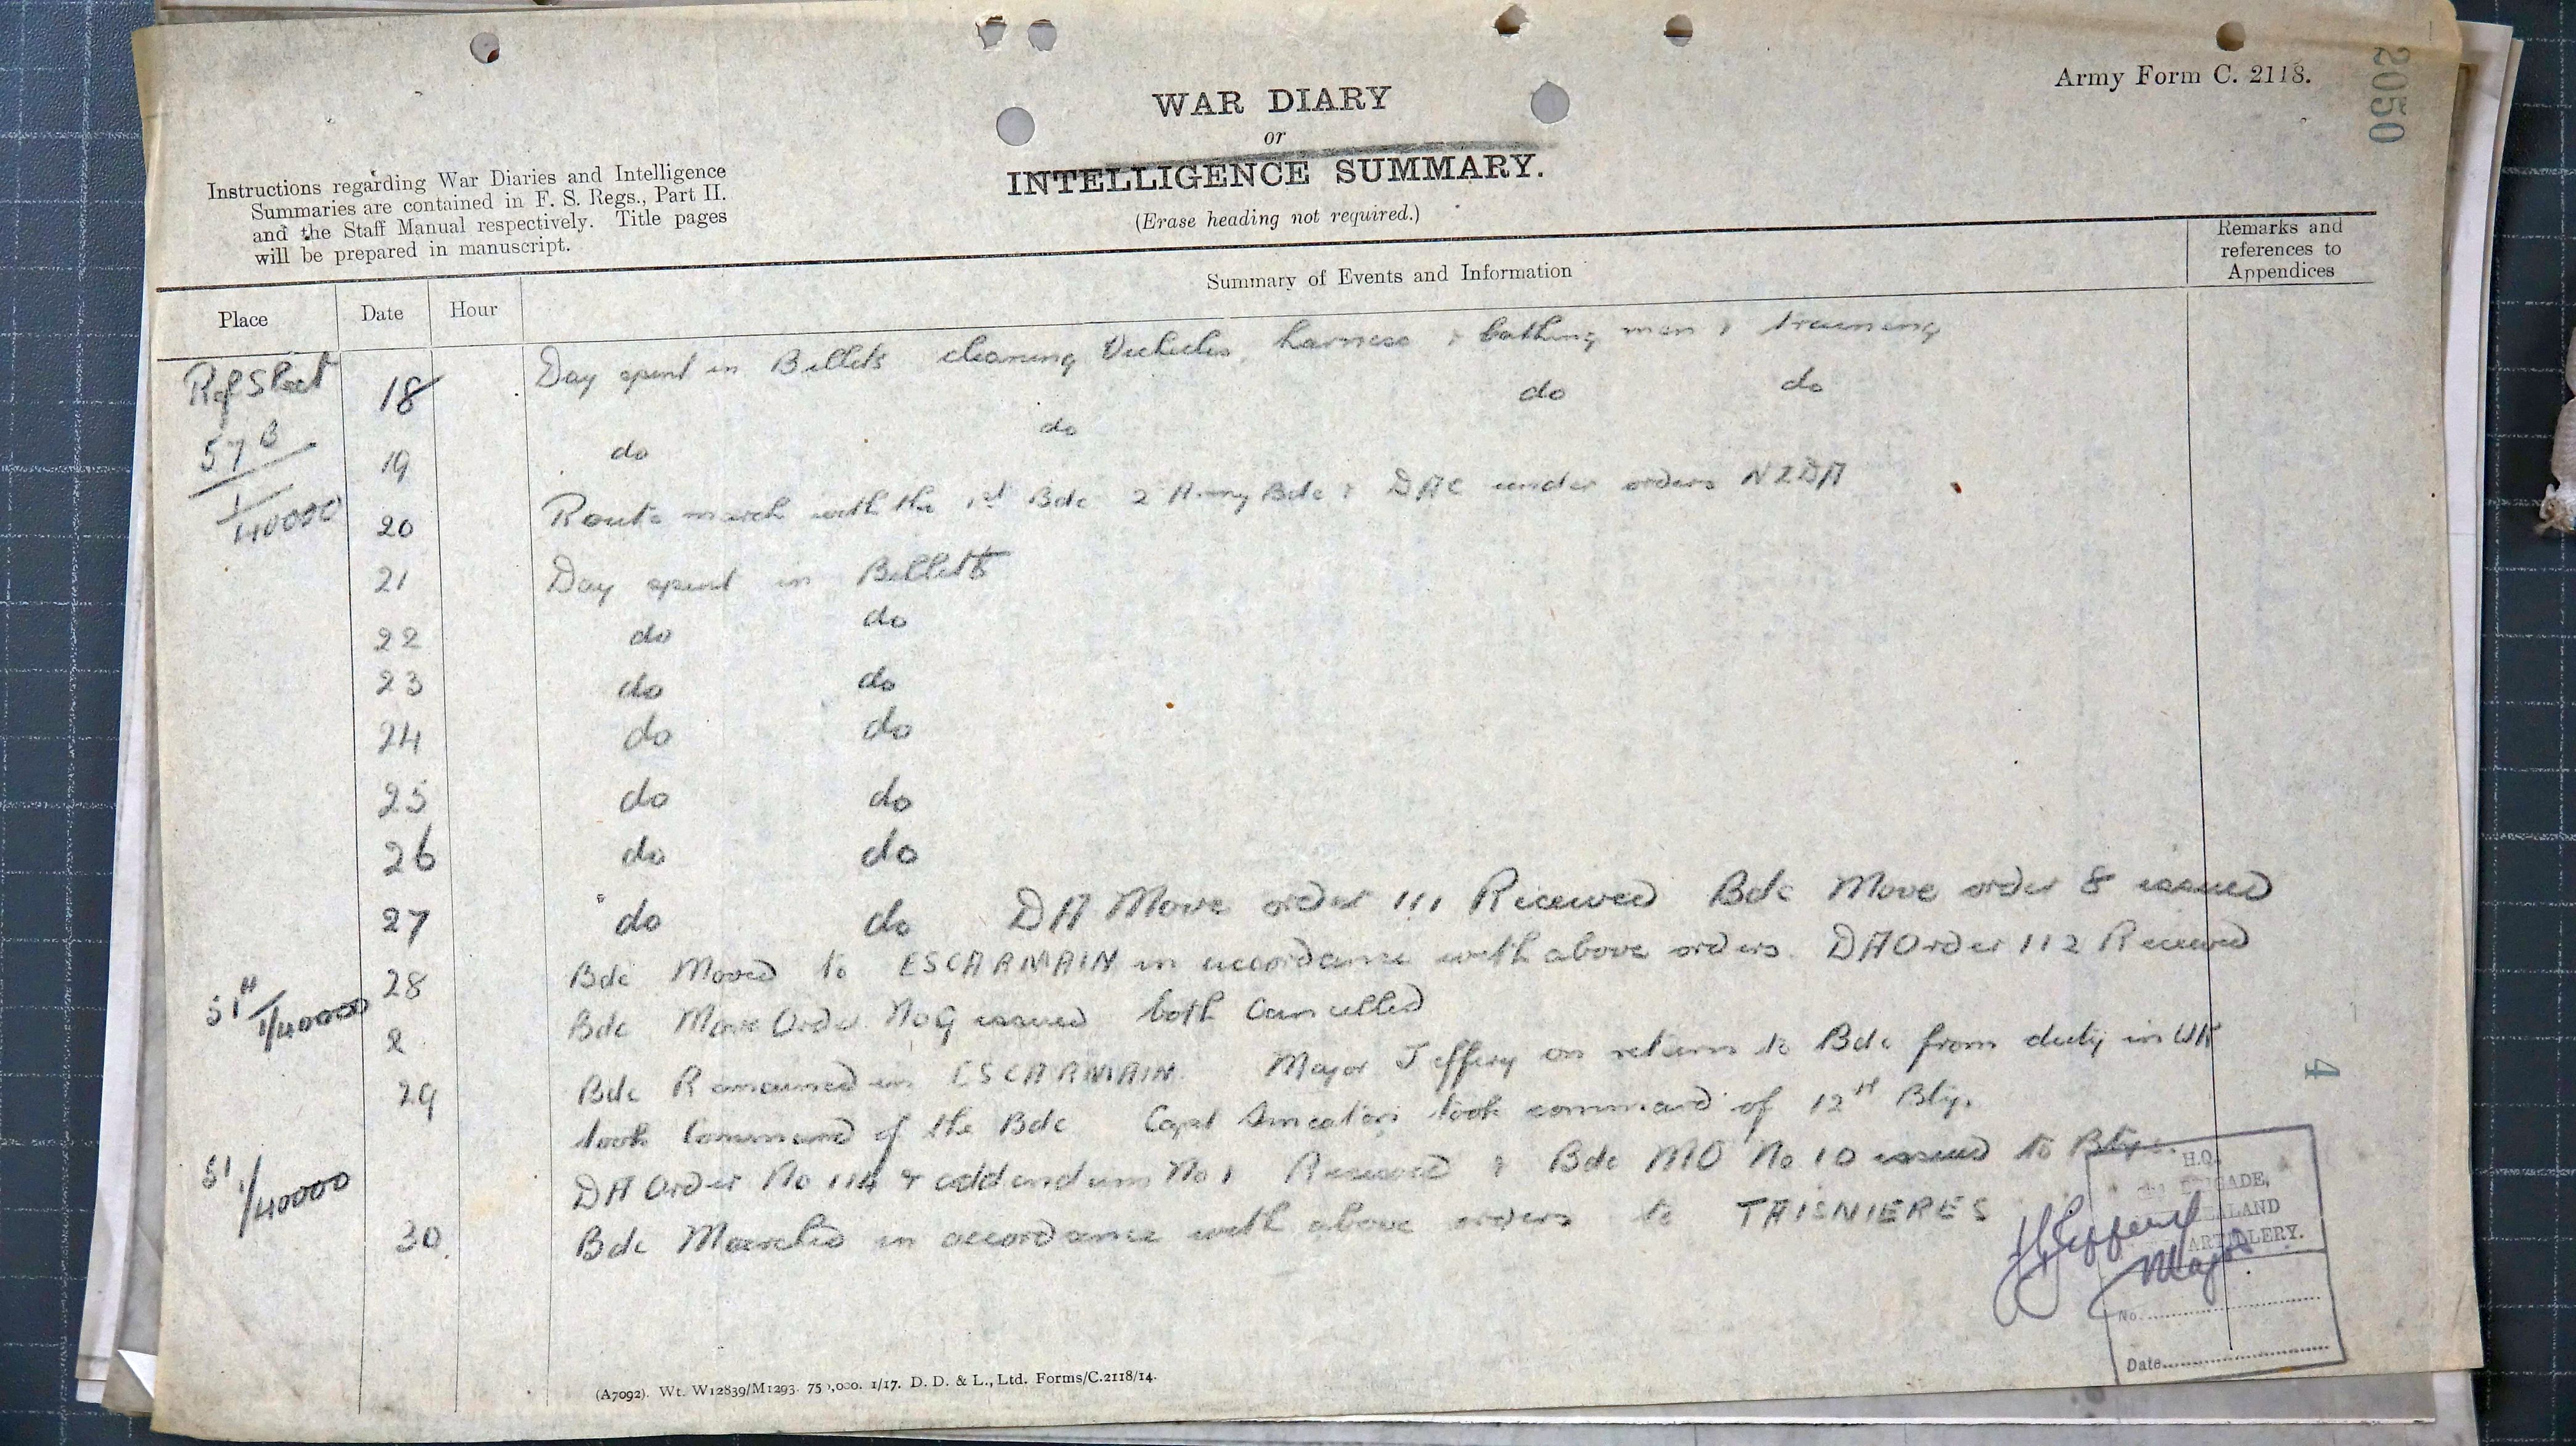 Army Form C. 2118.
2050
WAR DIARY
or
INTELLIGENCE SUMMARY.
(Erase heading not required.)
Instructions regarding War Diaries and Intelligence
Summaries are contained in F. S. Regs., Part II.
and the Staff Manual respectively. Title pages
will be prepared in manuscript.
Place Date Hour Summary of Events and Information Remarks and references to Appendices
Ref Sheet 18 Day spent in Billets cleaning Vechicles, harness & bathing men & training
57B 19 do do do do
1/40000 20 Route march with the 1st Bde 2 Army Bde & DAC under orders NZDA
21 Day spent in Billets
22 do do
23 do do
24 do do
25 do do
26 do do
27 do do DA Move order 111 Received Bde Move order 8 issued
28 Bde Moved to ESCARMAIN in accordance with above orders. DA Order 112 Received
51 1/40000 2 Bde Move Order No 9 issued both Cancelled
29 Bde Remained in ESCARMAIN. Major Jeffery on return to Bde from duty in UK
took Command of the Bde Capt Smeaton took command of 12th Bty.
51 1/40000 DA Order No 114 & addendum No 1 Received & Bde MO No 10 issued to Btys.
30. Bde Marched in accordance with above orders to TAISNIERES
Jeffery
Major
H.Q.
BRIGADE,
ZEALAND
ARTILLERY.
No.
Date
4
(A7092). Wt. W12839/M1293. 750,000. 1/17. D. D. & L., Ltd. Forms/C.2118/14.